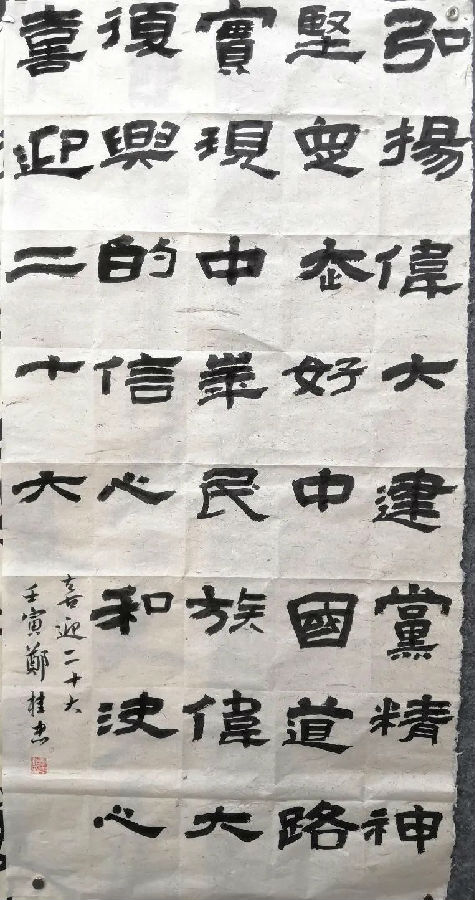 弘揚偉大建黨精神
堅定走好中國道路
實現中華民族偉大
復興的信心和决心
喜迎二十大
喜迎二十大
壬寅鄭桂杰